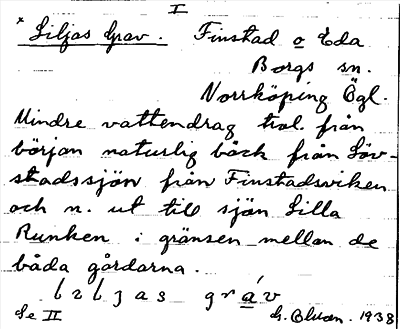 I
* Siljas Grav. Finstad o Eda
Borgs sn.
Norrköping Ögl.
Mindre vattendrag trol. från
början naturlig bäck från Löv-
stadssjön från Finstadsviken
och n. ut till sjön Lilla
Runken i gränsen mellan de
båda gårdarna.
Se II G. 1938